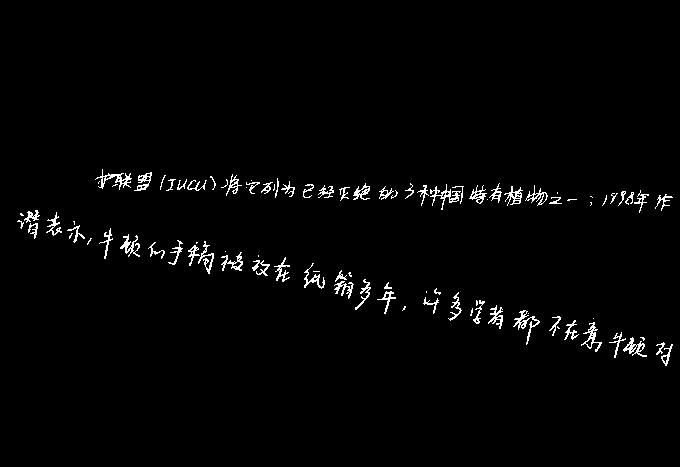 护联盟(IUCU)将它列为已经灭绝的3种中国特有植物之一;1998年作
谱表示,牛顿的手稿被放在纸箱多年,许多学者都不在意牛顿对